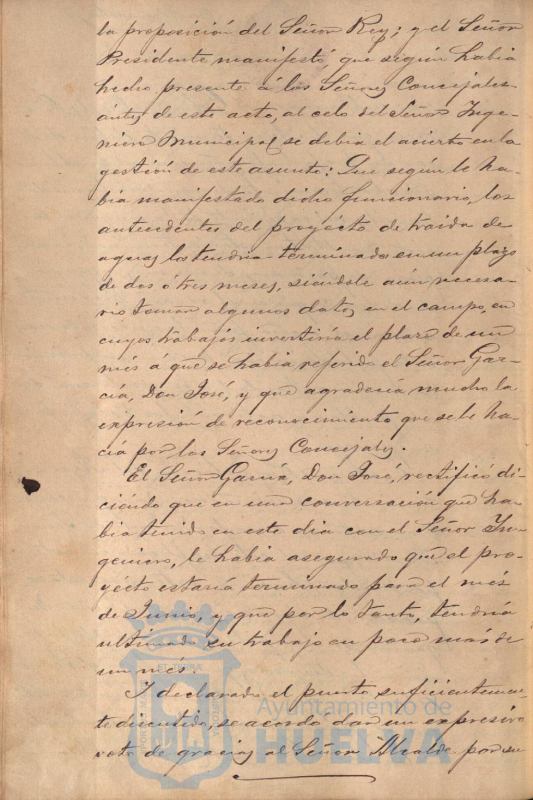 la proposición del Señor Rey; y el Señor
Presidente manifestó, que según habia
hecho presente á los Señores Concejales
ántes de este acto, al celo del Señor Inge-
niero Municipal se debia el acierto en la
gestión de este asunto: Que según le ha-
bía manifestado dicho funcionario, los
antecedentes del proyécto de traida de
aguas los tendria terminados en un plazo
de dos ó tres meses, siéndole aún necesa-
rio tomar algunos datos en el campo, en
cuyos trabajos invertiría el plazo de un
més á que se habia referido el Señor Gar-
cía, Don José, y que agradecia mucho la
expresión de reconocimiento que se le ha-
cía por los Señores Concejales.
El Señor García, Don José, rectificó di-
ciéndo que en una conversación que ha-
bia tenido en este dia con el Señor In-
geniero, le habia asegurado que el pro-
yécto estaría terminado para el més
de Junio, y que por lo tanto, tendría
ultimado su trabajo en poco más de
un més.
I declarado el punto suficientemen-
te discutido, se acordó dar un expresivo
voto de gracias al Señor Alcalde por su
Ayuntamiento de
HUELVA